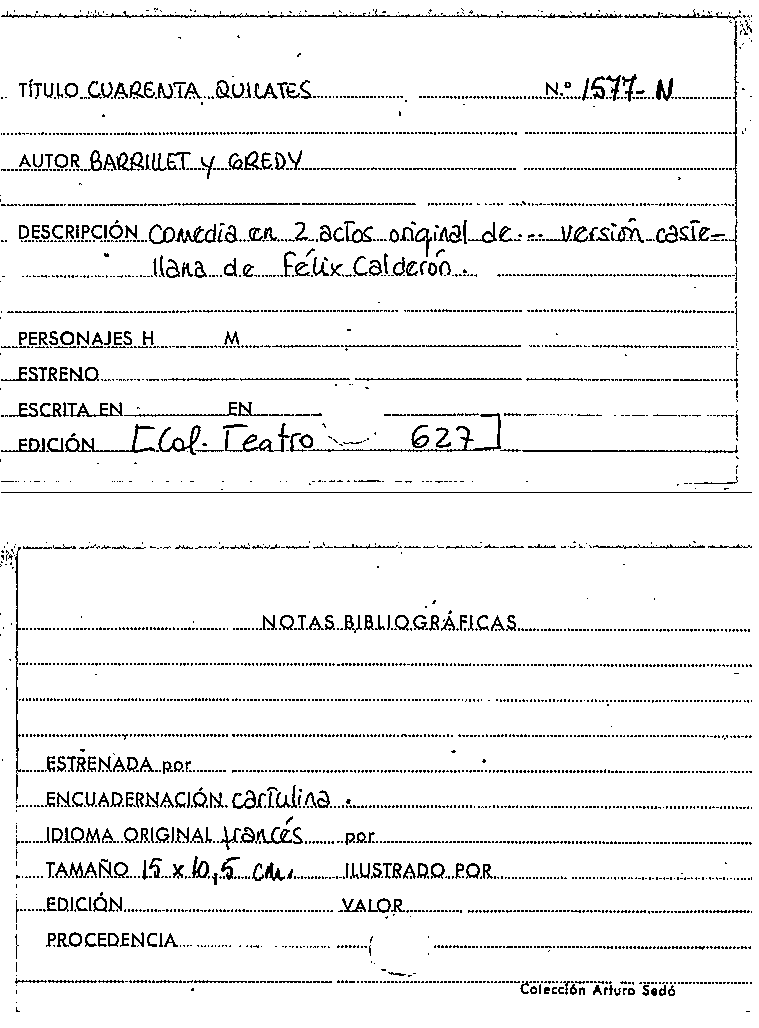 TÍTULO CUARENTA QUILATES N.º 1577-N
AUTOR BARRILLET y GREDY
DESCRIPCIÓN Comedia en 2 actos original de... versión caste-
llana de Félix Calderón.
PERSONAJES H M
ESTRENO
ESCRITA EN EN
EDICIÓN [Col. Teatro 627]
NOTAS BIBLIOGRÁFICAS
ESTRENADA por
ENCUADERNACIÓN cartulina.
IDIOMA ORIGINAL francés por
TAMAÑO 15 x 10,5 cm. ILUSTRADO POR
EDICIÓN VALOR
PROCEDENCIA
Colección Arturo Sedó